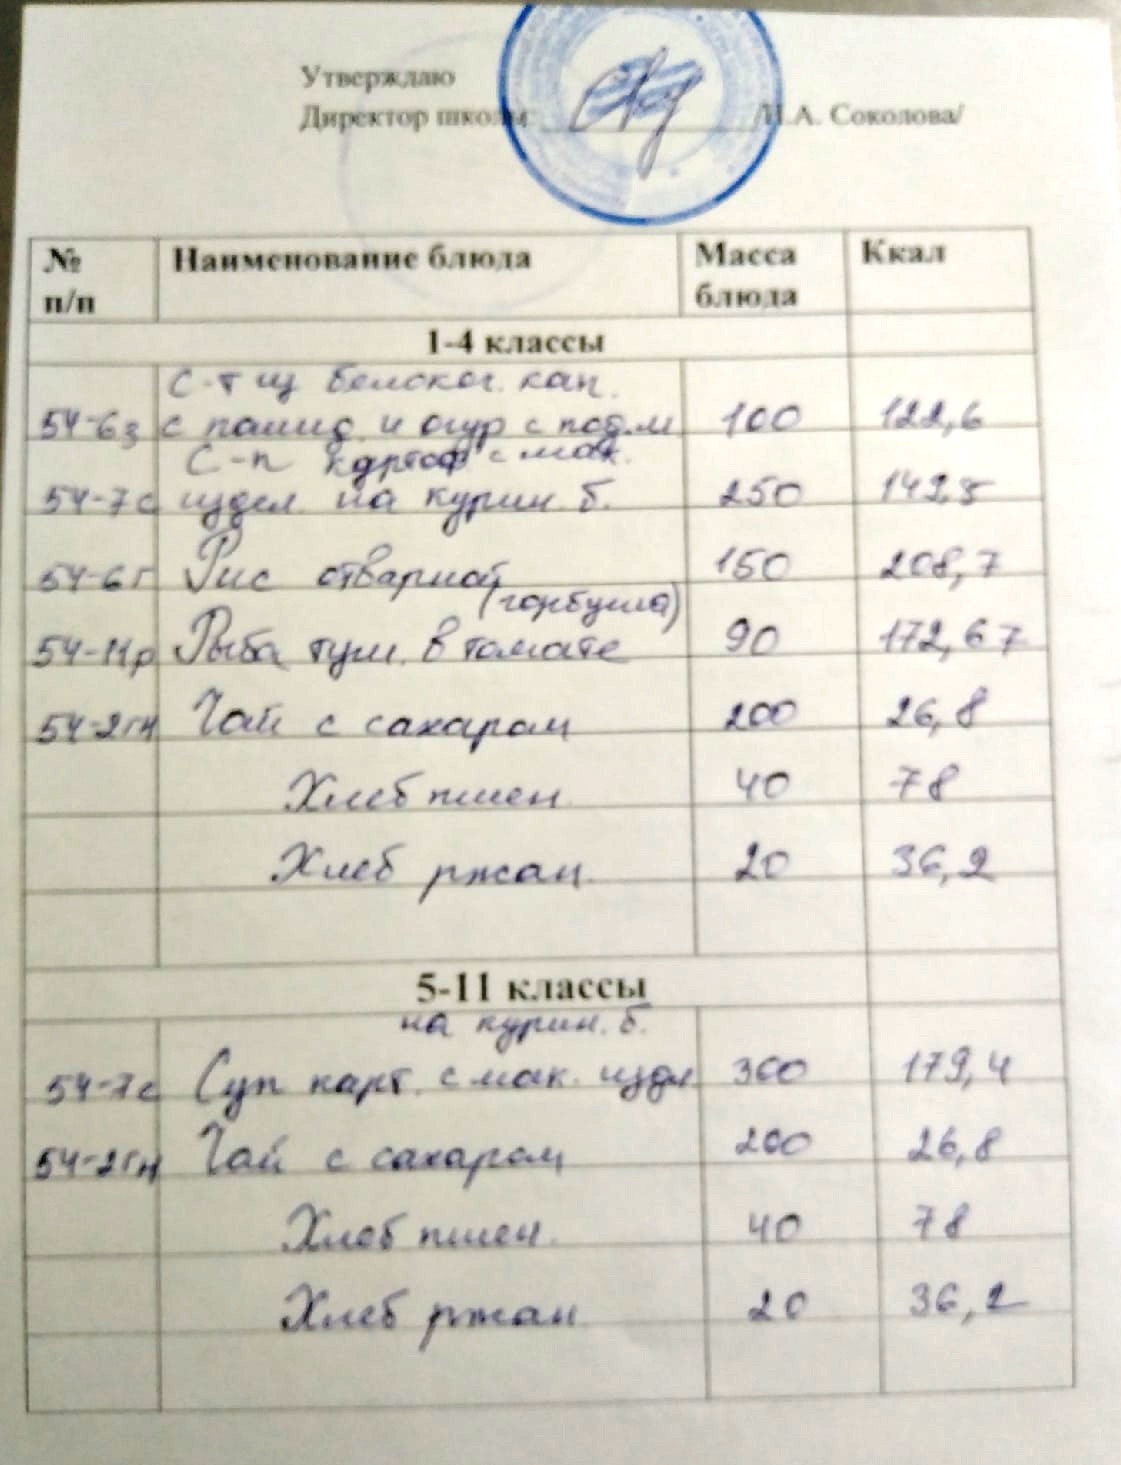 Утверждаю
Директор школы: /Н.А. Соколова/
№ п/п Наименование блюда Масса блюда Ккал
1-4 классы
С-т из белокоч. кап.
54-6з с помид. и огур с под.м 100 122,6
С-п картоф с мак.
54-7с издел. на курин. б. 250 149,5
54-6г Рис отварной 150 208,7
(горбуша)
54-11р Рыба туш. в томате 90 172,67
54-2гн Чай с сахаром 200 26,8
Хлеб пшен. 40 78
Хлеб ржан. 20 36,2
5-11 классы
на курин. б.
54-7с Суп карт. с мак. изде 300 179,4
54-2гн Чай с сахаром 200 26,8
Хлеб пшен. 40 78
Хлеб ржан. 20 36,2